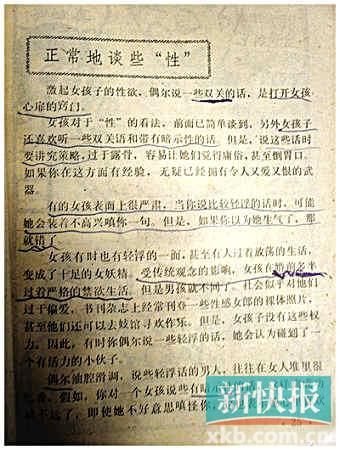 正常地谈些“性”
激起女孩子的性欲，偶尔说一些双关的话，是打开女孩
心扉的窍门。
女孩对于“性”的看法，前面已简单谈到，另外女孩子
还喜欢听一些双关语和带有暗示性的话。但是，说这些话时
要讲究策略，过于露骨，容易让她们觉得庸俗，甚至倒胃口。
如果你在这方面有经验，无疑已经拥有令人又爱又恨的武
器。
有的女孩表面上很严肃，当你说比较轻浮的话时，可能
她会装着不高兴嗔你一句。但是，如果你以为她生气了，那
就错了。
女孩有时也有轻浮的一面，甚至有人过着放荡的生活，
变成了十足的女妖精。受传统观念的影响，女孩在婚前多半
过着严格的禁欲生活。但是男孩就不同了。社会似乎对他们
过于偏爱，书刊杂志上经常刊登一些性感女郎的裸体照片，
甚至他们还可以去妓馆寻欢作乐。但是，女孩子没有这些权
力。因此，有时你偶尔说一些轻浮的话，她会认为碰到了一
个有活力的小伙子。
偶尔油腔滑调，说些轻浮话的男人，往往在女人堆里很
假如，你对一个女孩说些有暗
即使她不好意思嗔怪你，
新快报
xkb.com.cn